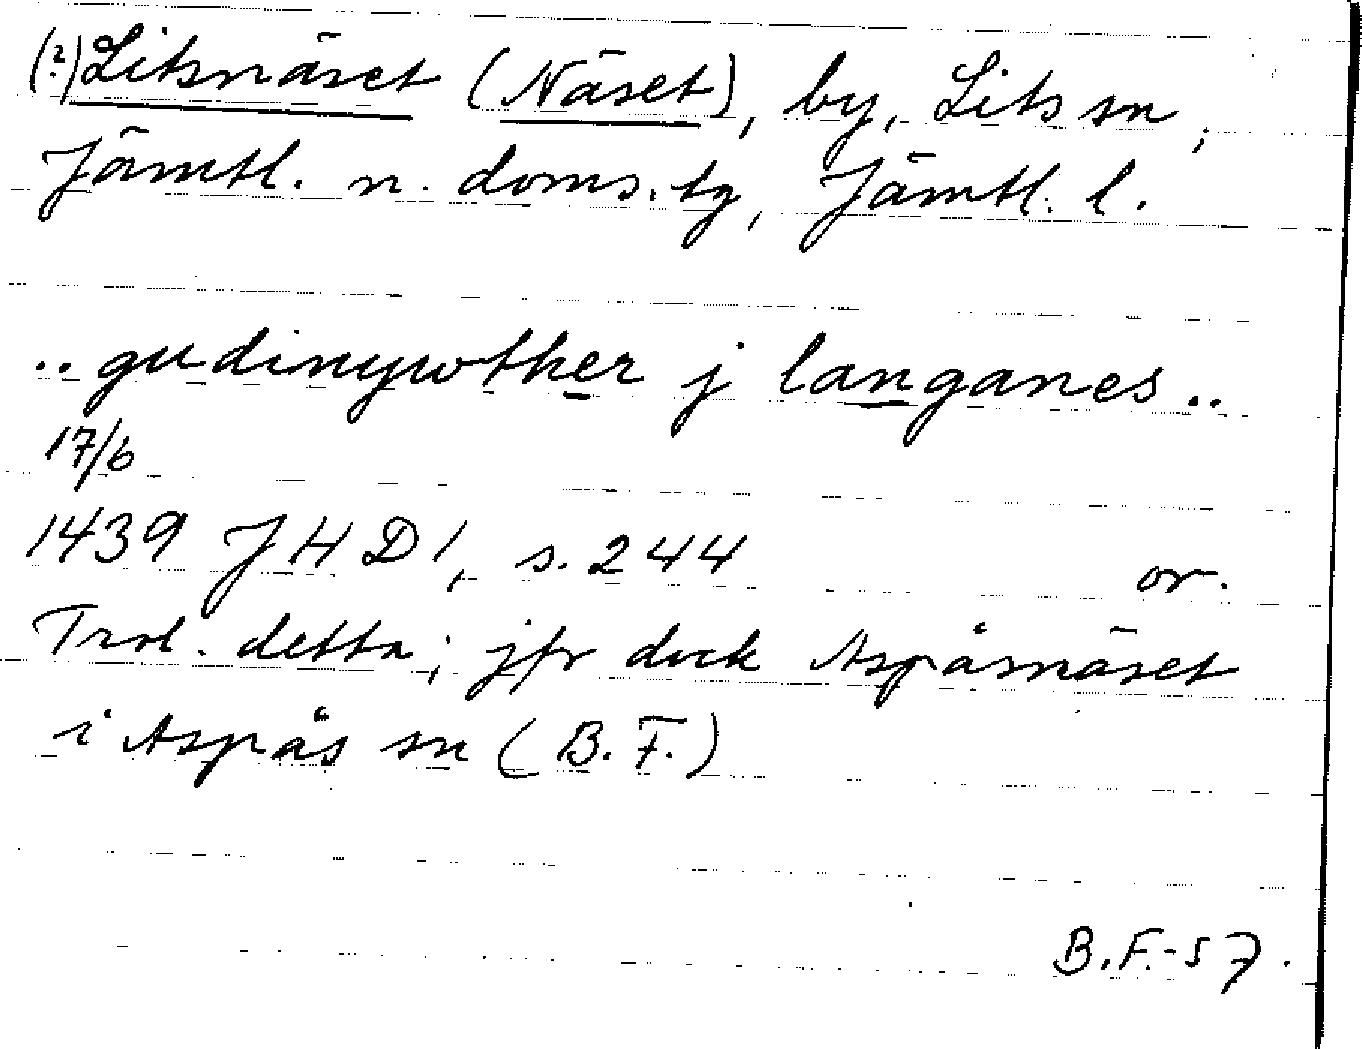 (?) Litsnäset (Näset), by, Lits sn,
Jämtl. n. doms. tg, Jämtl. l.
.. gudinywther j langanes ..
17/6
1439 JHD 1, s. 244 or.
Trol. detta; jfr dock Aspåsnäset
i Aspås sn (B.F.)
B.F.-57.